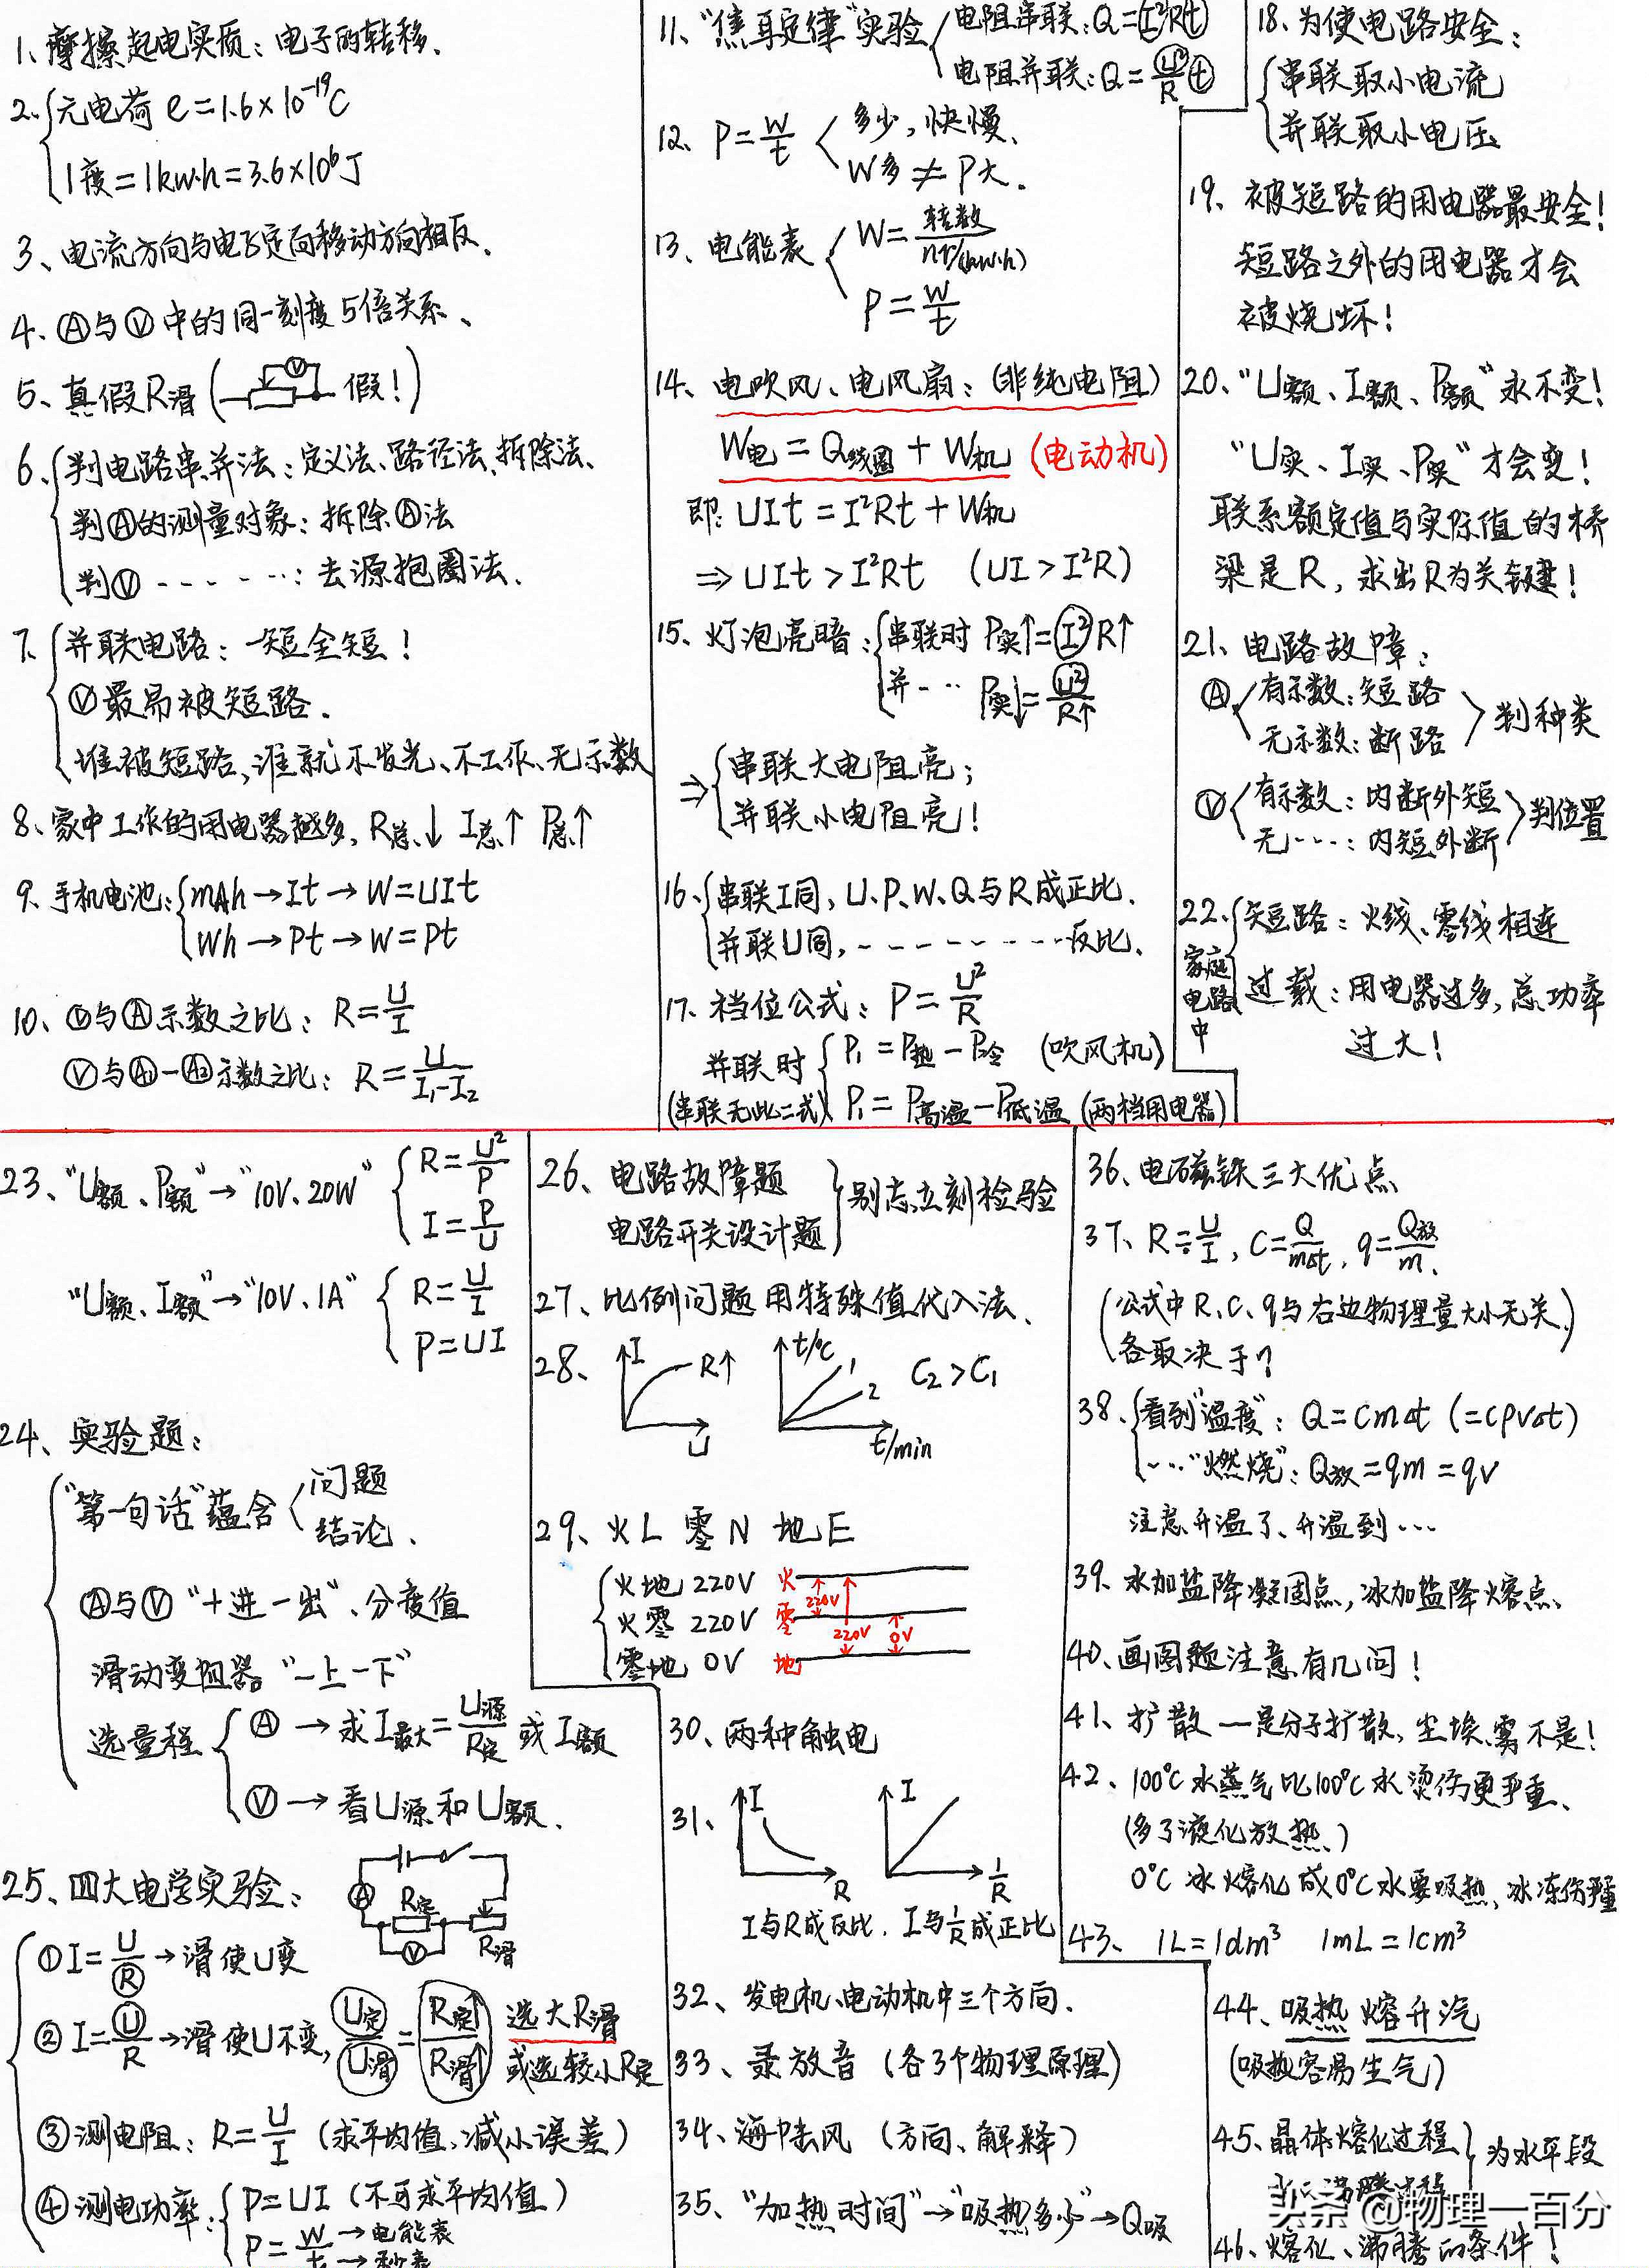 1、摩擦起电实质：电子的转移、
2、元电荷 e=1.6×10⁻¹⁹C
1度=1kw·h=3.6×10⁶J
3、电流方向与电子定向移动方向相反、
4、Ⓐ与Ⓥ中的同一刻度5倍关系、
5、真假R滑(Ⓥ 假！)
6、判电路串、并法：定义法、路径法、拆除法、
判Ⓐ的测量对象：拆除Ⓐ法
判Ⓥ-----：去源抱圈法、
7、并联电路：一短全短！
Ⓥ最易被短路．
谁被短路，谁就不发光、不工作、无示数
8、家中工作的用电器越多，R总↓ I总↑ P总↑
9、手机电池：mAh→It→W=UIt
Wh→Pt→W=Pt
10、Ⓥ与Ⓐ示数之比：R=U/I
Ⓥ与Ⓐ₁-Ⓐ₂示数之比：R=U/(I₁-I₂)
11、"焦耳定律"实验 电阻串联：Q=I²Rt
电阻并联：Q=U²/R t
12、P=W/t 多少，快慢、
W多≠P大．
13、电能表 W=转数/nr/(kw·h)
P=W/t
14、电吹风、电风扇：(非纯电阻)
W电=Q线圈+W机 (电动机)
即：UIt=I²Rt+W机
⇒UIt>I²Rt (UI>I²R)
15、灯泡亮暗：串联时 P实↑=I²R↑
并-- P实↓=U²/R↑
⇒串联大电阻亮；
并联小电阻亮！
16、串联I同，U、P、W、Q与R成正比．
并联U同，--------反比、
17、档位公式：P=U²/R
并联时 P₁=P热-P冷 (吹风机)
(串联无此二式) P₁=P高温-P低温 (两档用电器)
18、为使电路安全：
串联取小电流
并联取小电压
19、被短路的用电器最安全！
短路之外的用电器才会
被烧坏！
20、"U额、I额、P额"永不变！
"U实、I实、P实"才会变！
联系额定值与实际值的桥
梁是R，求出R为关键！
21、电路故障：
Ⓐ 有示数：短路
无示数：断路 判种类
Ⓥ 有示数：内断外短
无---：内短外断 判位置
22、家庭电路中 短路：火线、零线相连
过载：用电器过多，总功率
过大！
23、"U额、P额"→"10V、20W" R=U²/P
I=P/U
"U额、I额"→"10V、1A" R=U/I
P=UI
24、实验题：
"第一句话"蕴含 问题
结论．
Ⓐ与Ⓥ"+进-出"、分度值
滑动变阻器"一上一下"
选量程 Ⓐ→求I最大=U源/R定 或I额
Ⓥ→看U源和U额．
25、四大电学实验：
Ⓐ R定 Ⓥ R滑
①I=U/R→滑使U变
②I=U/R→滑使U不变，U定/U滑=R定↑/R滑↑ 选大R滑
或选较小R定
③测电阻：R=U/I (求平均值、减小误差)
④测电功率：P=UI (不可求平均值)
P=W/t →电能表
→秒表
26、电路故障题
电路开关设计题 别忘立刻检验
27、比例问题用特殊值代入法、
28、I R↑ U t/℃ 1 2 t/min C₂>C₁
29、火L 零N 地E
火地 220V
火零 220V
零地 0V
火 220V
零 220V 0V
地
30、两种触电
31、I R I 1/R
I与R成反比．I与1/R成正比
32、发电机、电动机中三个方向．
33、录放音 (各3个物理原理)
34、海陆风 (方向、解释)
35、"加热时间"→"吸热多少"→Q吸
36、电磁铁三大优点
37、R=U/I，C=Q/mΔt，q=Q放/m、
(公式中R、C、q与右边物理量大小无关、
各取决于？)
38、看到"温度"：Q=CmΔt (=CρVΔt)
---"燃烧"：Q放=qm=qV
注意升温了、升温到…
39、水加盐降凝固点，冰加盐降熔点、
40、画图题注意有几问！
41、扩散一是分子扩散，尘埃、雾不是！
42、100℃水蒸气比100℃水烫伤更严重、
(多了液化放热、)
0℃冰熔化成0℃水要吸热，冰冻伤严重
43、1L=1dm³ 1mL=1cm³
44、吸热 熔升汽
(吸热容易生气)
45、晶体熔化过程
为水平段
46、熔化、沸腾的条件！
头条 @物理一百分